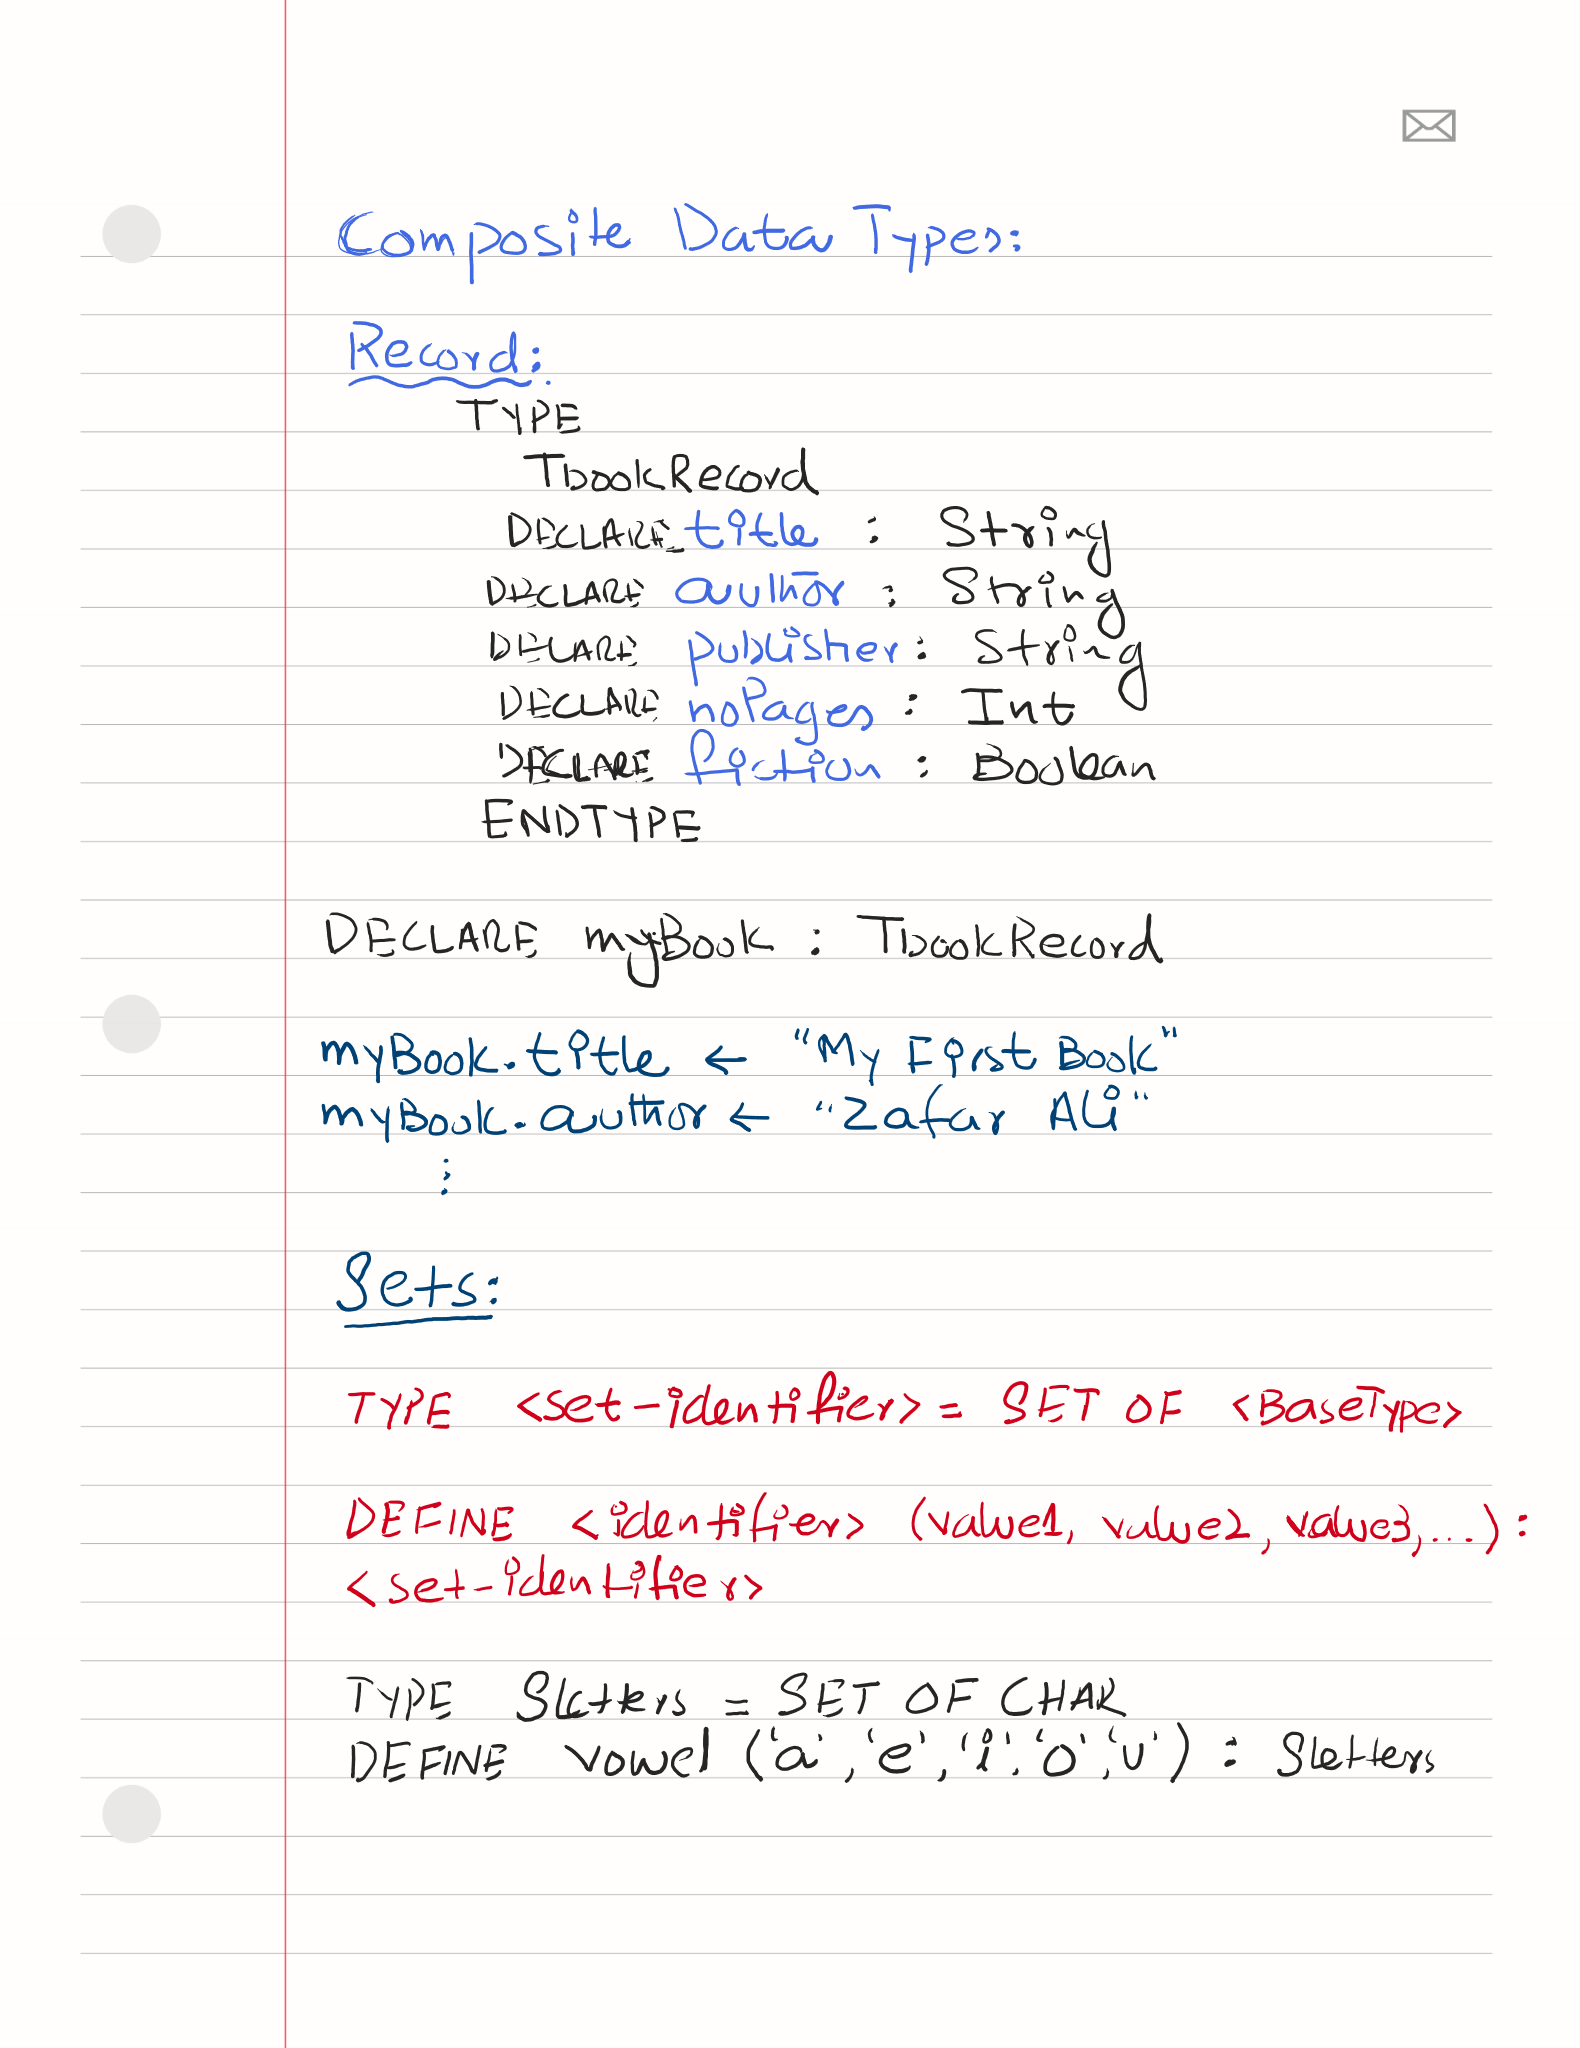 Composite Data Types:
Record:
TYPE
TbookRecord
DECLARE title : String
DECLARE author : String
DECLARE publisher : String
DECLARE noPages : Int
DECLARE fiction : Boolean
ENDTYPE
DECLARE myBook : TbookRecord
myBook.title ← "My First Book"
myBook.author ← "Zafar Ali"
⋮
Sets:
TYPE <set-identifier> = SET OF <BaseType>
DEFINE <identifier> (value1, value2, value3, ...) :
<set-identifier>
TYPE Sletters = SET OF CHAR
DEFINE vowel ('a', 'e', 'i', 'o', 'u') : Sletters